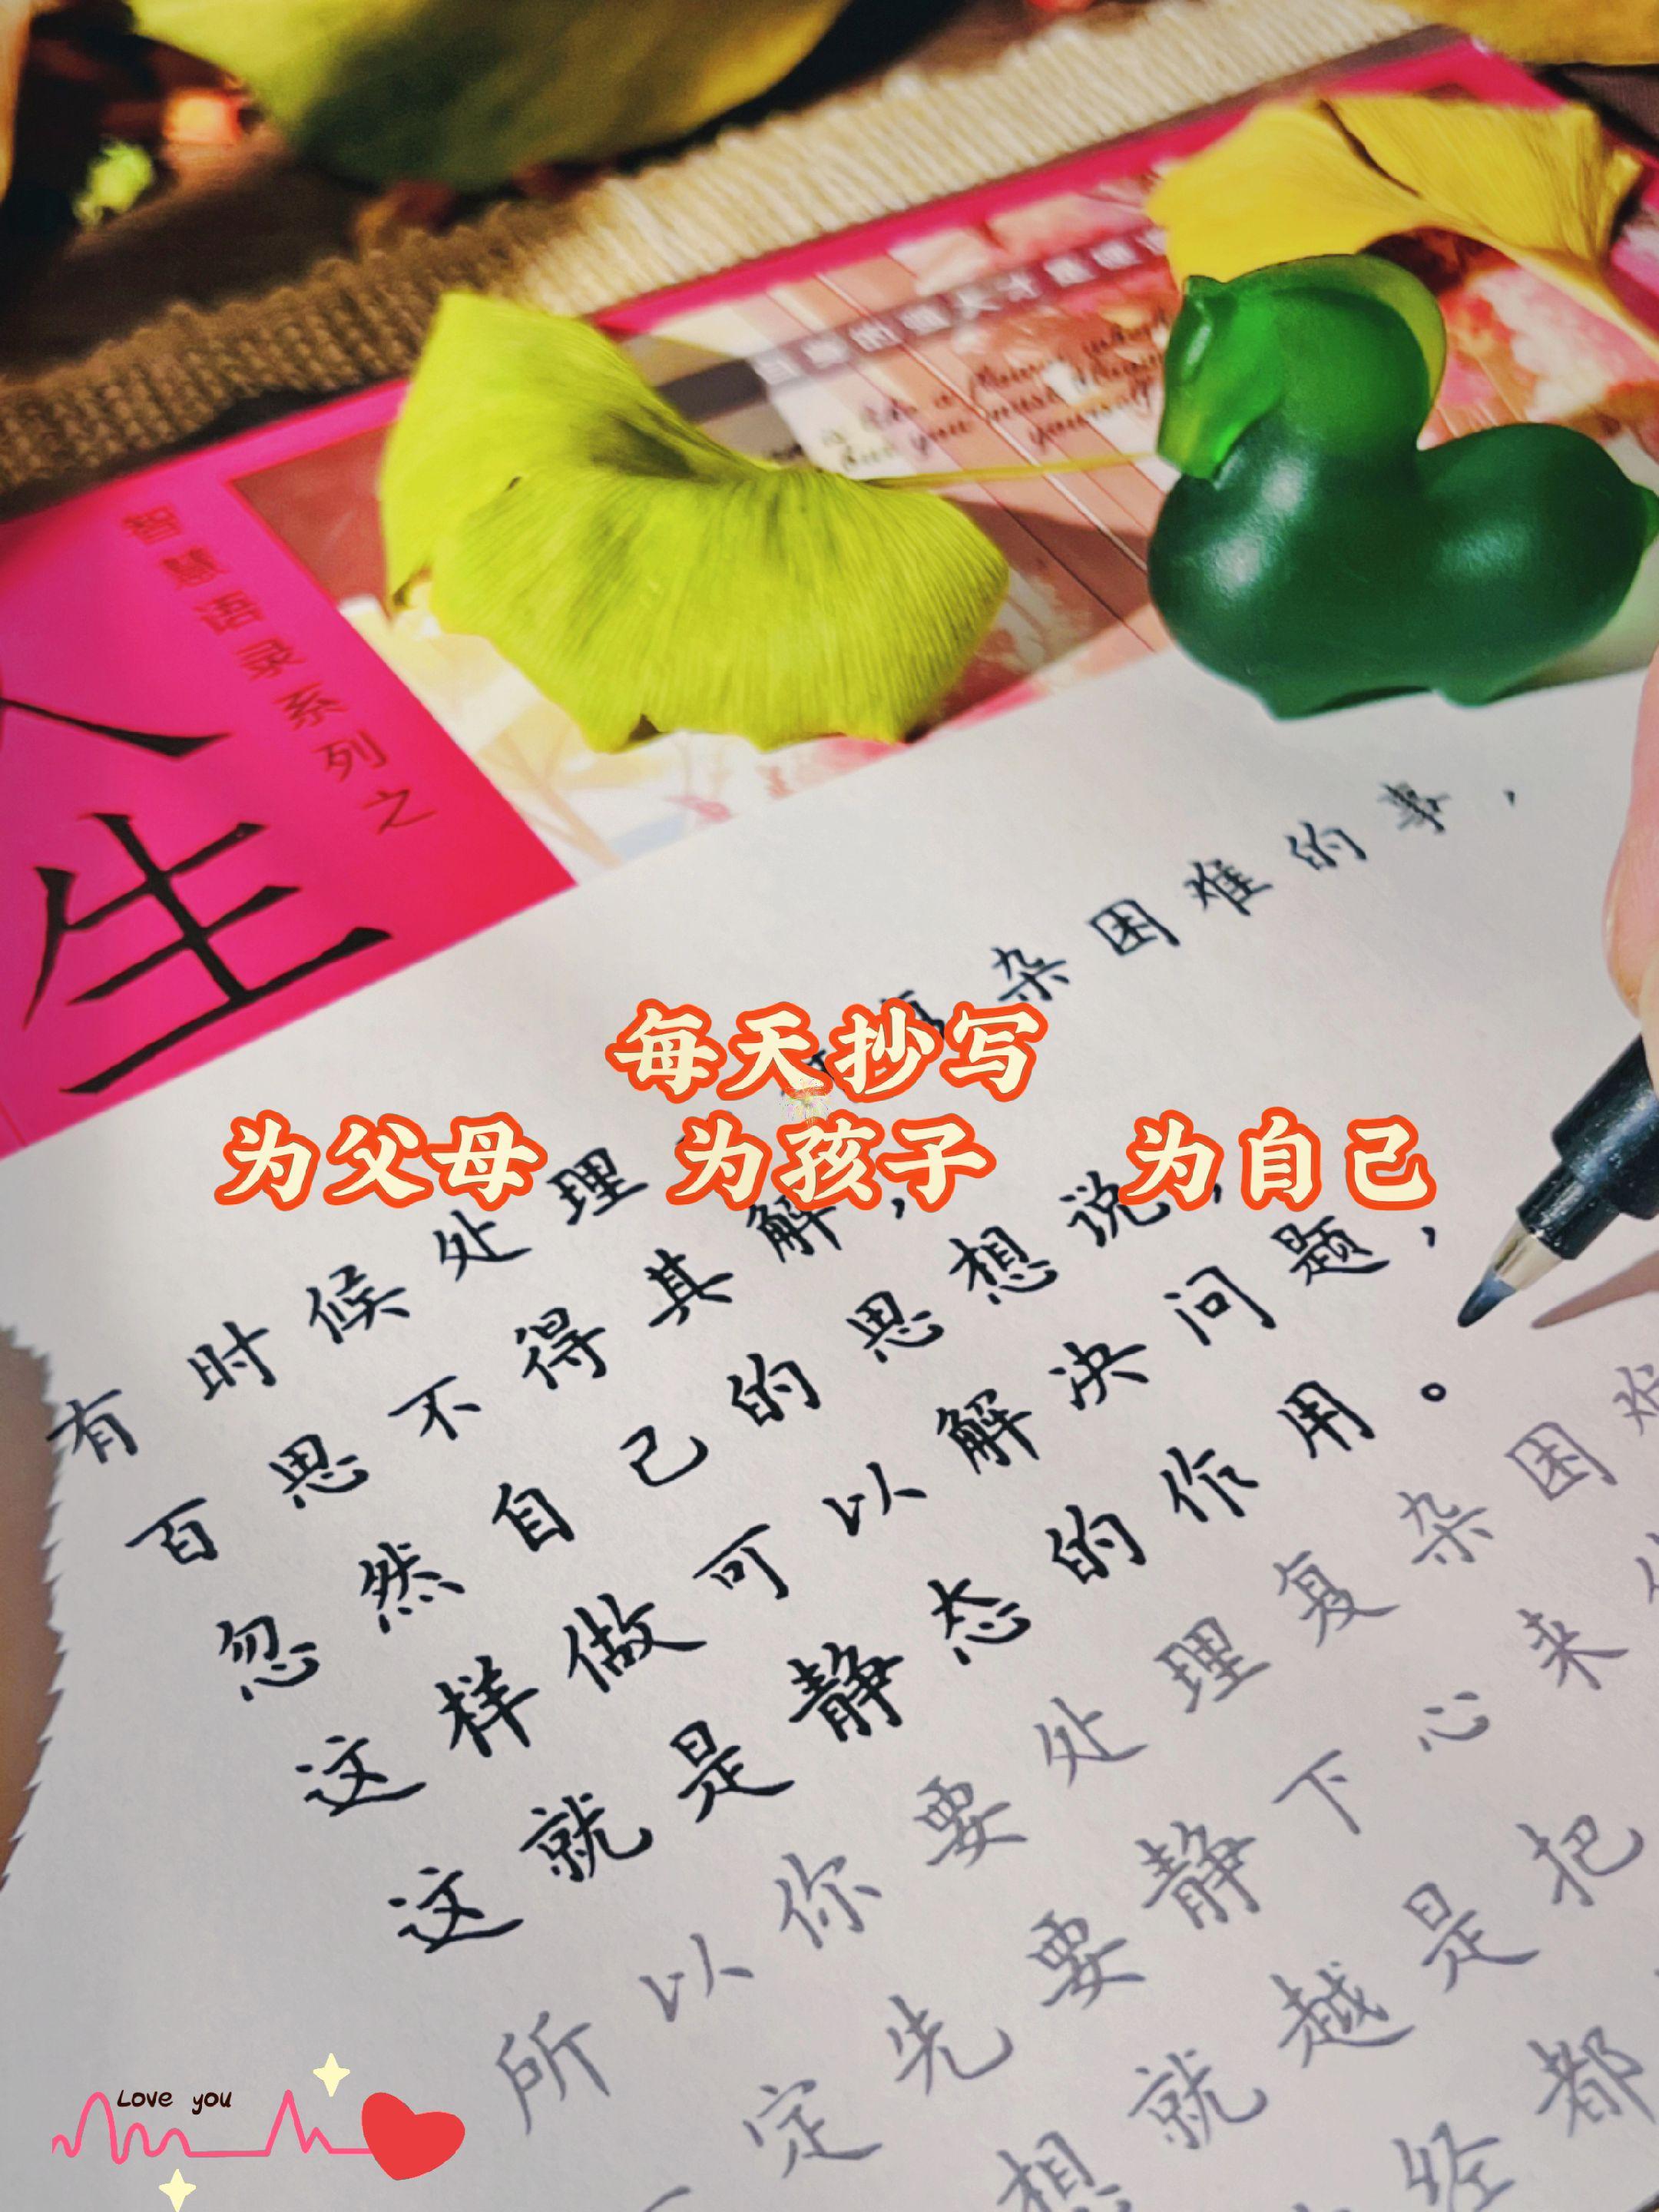 智慧语录系列之
人生
is like a flower
but you must
yourself
每天抄写
为父母 为孩子 为自己
有时候处理 复杂困难的事，
百思不得其解，
忽然自己的思想说，
这样做可以解决问题，
这就是静态的作用。
所以你要处理复杂困难
一定先要静下心来
想就越是把
经都
Love you